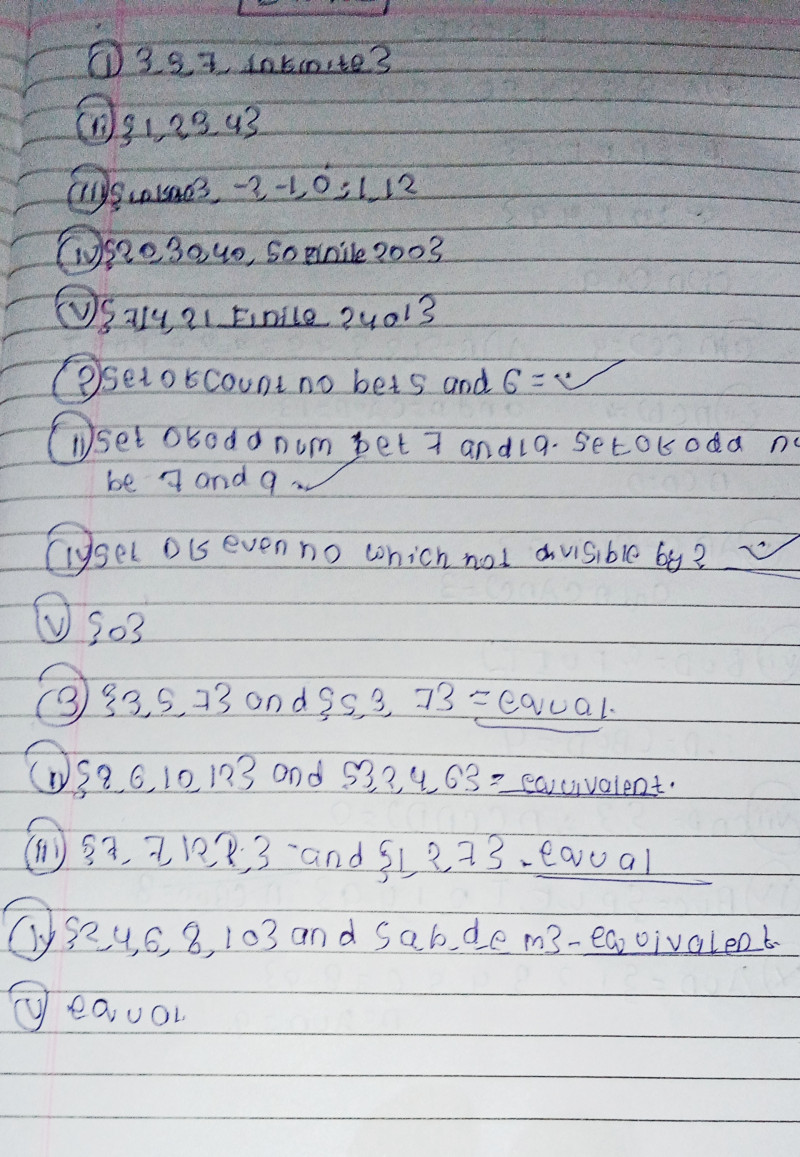 (i) 3, 5, 7, infinite}
(ii) {1, 2, 3, 4}
(iii) { -2, -1, 0, 1, 12
(iv) {20, 30, 40, 50 Finite 200}
(v) {7, 14, 21 Finite 2401}
(2) Set of Count no bet 5 and 6 = ✓
(ii) Set of odd num bet 7 and 19. Set of odd
be 7 and 9 ✓
(iv) Set of even no which not divisible by 2 ✓
(v) {0}
(3) {3, 5, 7} and {5, 3, 7} = equal.
(ii) {8, 6, 10, 12} and {3, 2, 4, 6} = equivalent.
(iii) {7, 7, 1, 2, 2, } and {1, 2, 7} - equal
(iv) {2, 4, 6, 8, 10} and {a, b, d e m} - equivalent.
(v) equal.